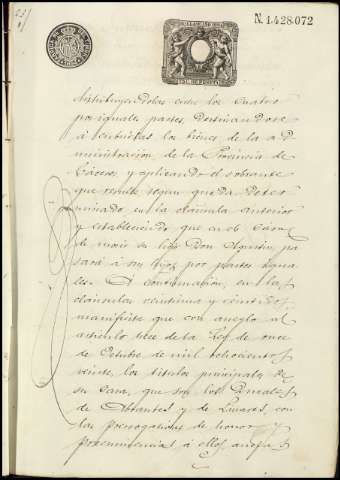 N. 1.428.072
distribuyendolas entre los cuatro
por iguales partes, destinandose
á cubrirlas los bienes de la ad
ministracion de la Provincia de
Cáceres y aplicando el sobrante
que resulte segun queda deter
minado en la cláusula anterior
y estableciendo que en el caso
de morir su hijo Don Agustin, pa
sará á sus hijos por partes igua
les. A continuacion, en las
cláusulas veintiuna y veintidos
manifiesta que con arreglo al
articulo trece de la Ley de once
de Octubre de mil ochocientos
veinte, los titulos principales de
su casa, que son los Ducales
de Abrantes y de Linares, con
las prerrogativas de honor y
preeminencias á ellos anejas